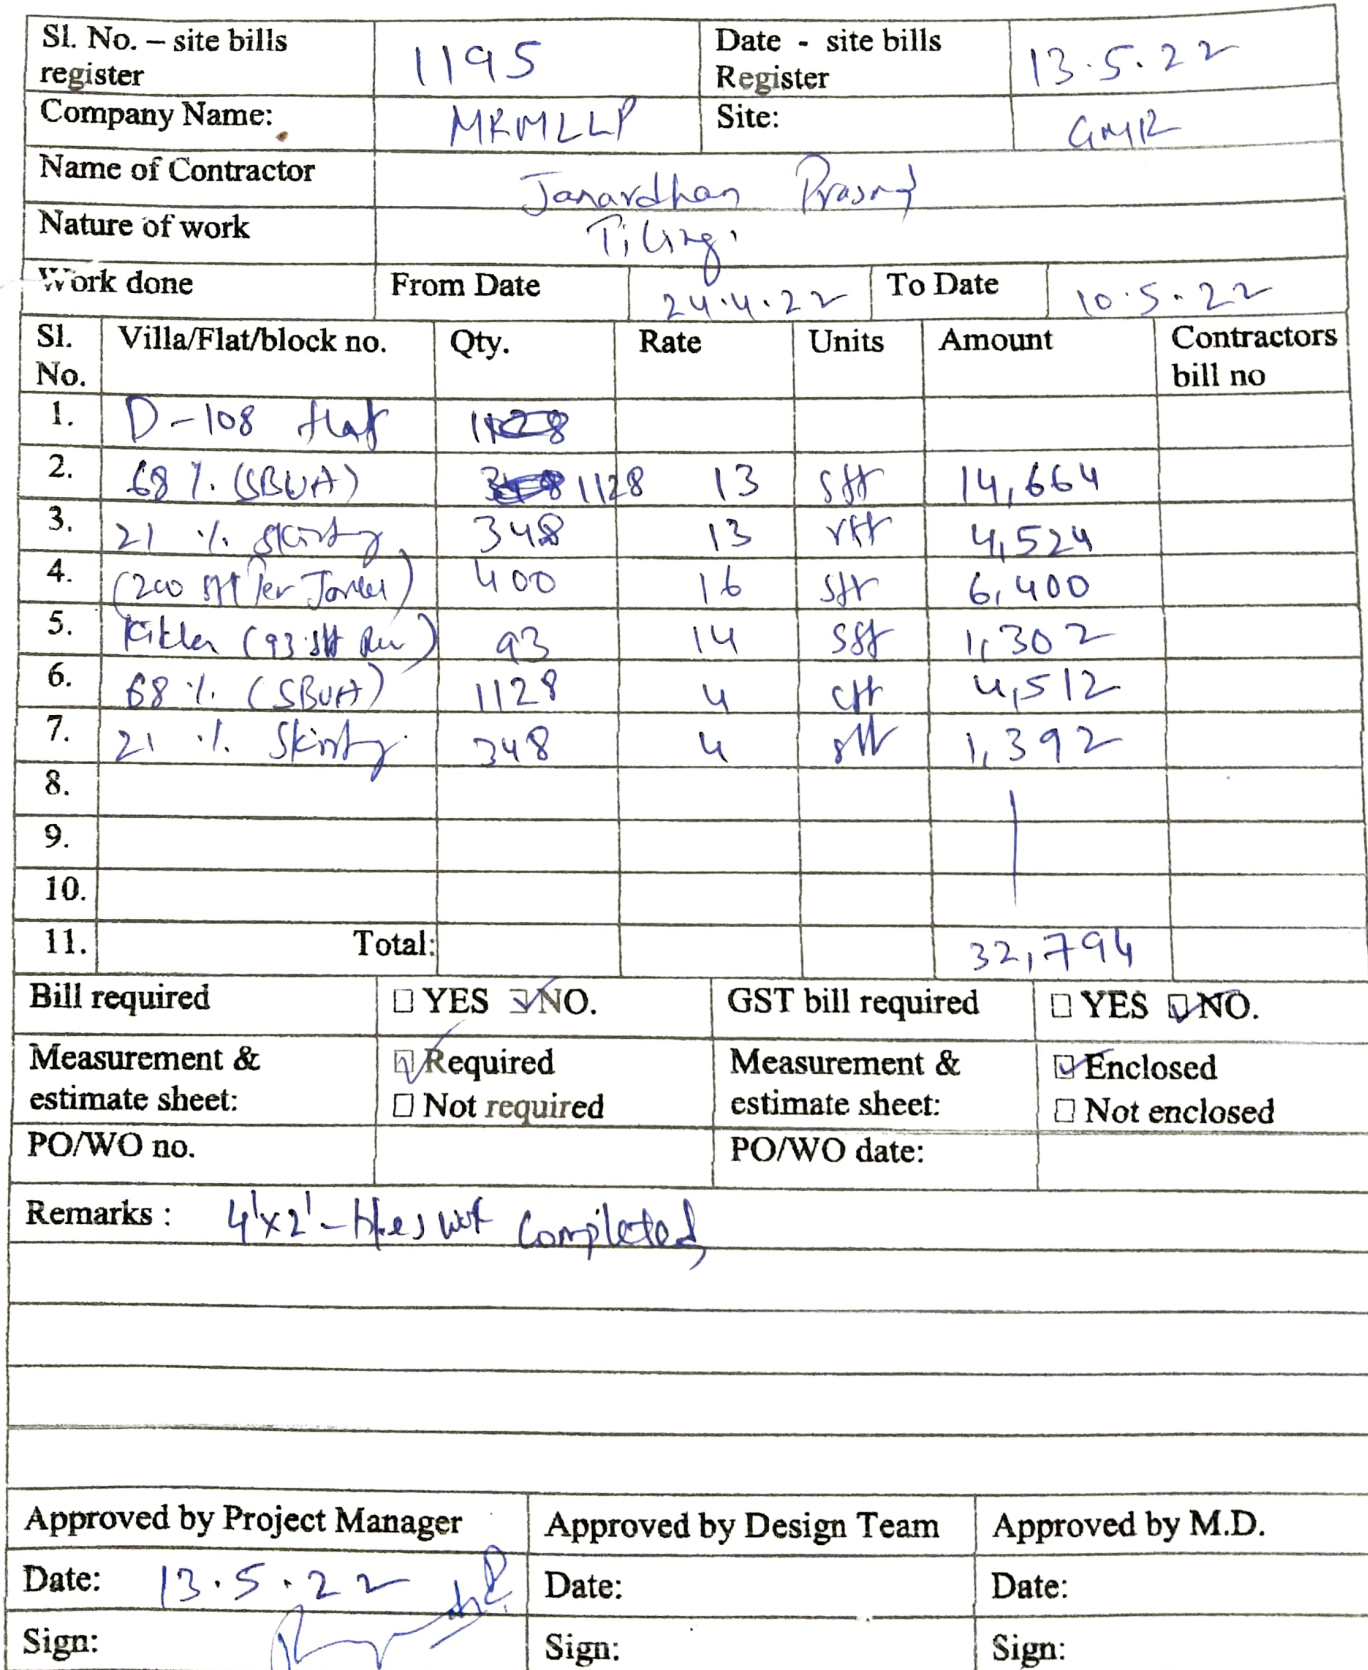 Sl. No. – site bills register 1195 Date - site bills Register 13.5.22
Company Name: MRMLLP Site: GMR
Name of Contractor Janardhan Prasad
Nature of work Tiling
Work done From Date 24.4.22 To Date 10.5.22
Sl. No. Villa/Flat/block no. Qty. Rate Units Amount Contractors bill no
1. D-108 flat
2. 68 %. (SBUA) 1128 13 sft 14,664
3. 21 %. Skirting 348 13 rft 4,524
4. (200 sft Per 400 16 sft 6,400
5. (93 sft 93 14 sft 1,302
6. 68 %. (SBUA) 1128 4 sft 4,512
7. 21 %. Skirting 348 4 sft 1,392
8.
9.
10.
11. Total: 32,794
Bill required ☐ YES ☑ NO. GST bill required ☐ YES ☑ NO.
Measurement & estimate sheet: ☑ Required ☐ Not required Measurement & estimate sheet: ☑ Enclosed ☐ Not enclosed
PO/WO no. PO/WO date:
Remarks : 4'x2' - tiles completed
Approved by Project Manager Approved by Design Team Approved by M.D.
Date: 13.5.22 Date: Date:
Sign: Sign: Sign: